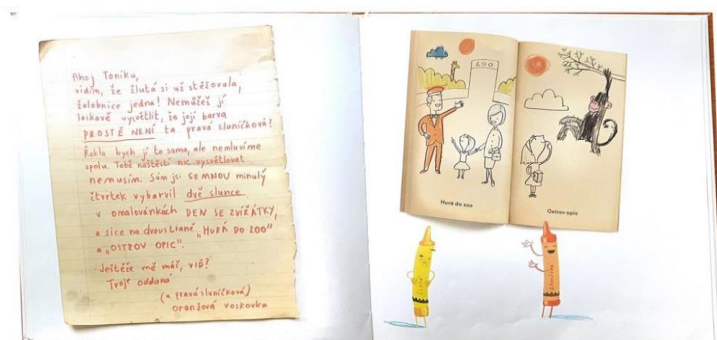 Ahoj Toníku,
vidím, že žlutá si už stěžovala,
žalobnice jedna! Nemůžeš jí
laskavě vysvětlit, že její barva
PROSTĚ NENÍ ta pravá sluníčková?
Řekla bych jí to sama, ale nemluvíme
spolu. Tobě naštěstí nic vysvětlovat
nemusím. Sám jsi SE MNOU minulý
čtvrtek vybarvil dvě slunce
v omalovánkách DEN SE ZVÍŘÁTKY,
a sice na dvoustraně „HURÁ DO ZOO"
a „OSTROV OPIC".
Ještěže mě máš, VIĎ?
Tvoje oddaná
(a pravá sluníčková)
oranžová voskovka
ZOO
Hurá do zoo
Ostrov opic